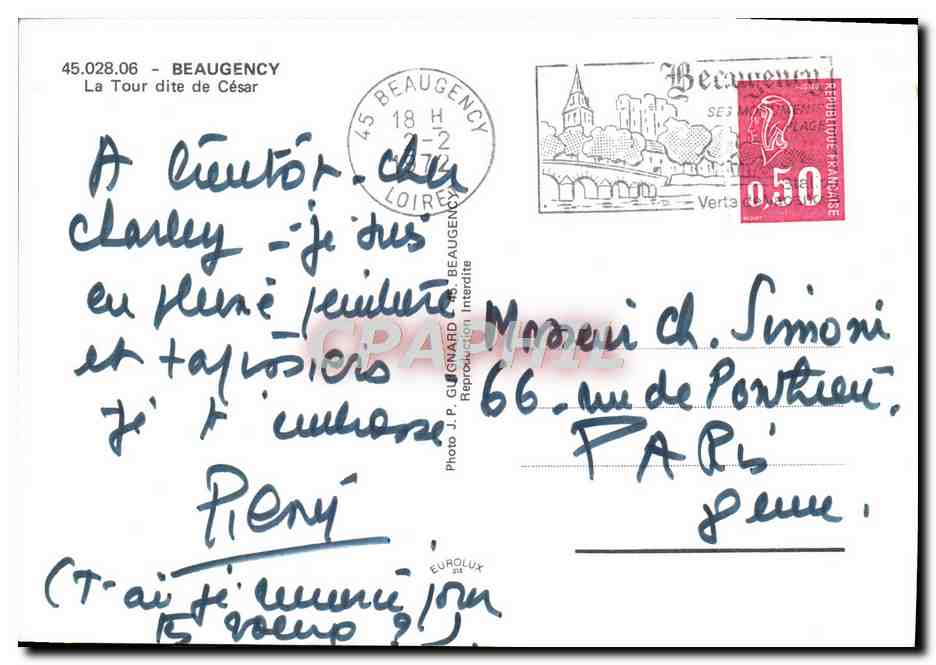 45.028.06 - BEAUGENCY
La Tour dite de César
45 BEAUGENCY
18 H
2-2
LOIRET
Beaugency
SES MONUMENTS
PLAGE
REPUBLIQUE FRANÇAISE
0,50
A bientôt cher
Charley - je suis
en pleine peinture
et
je t'embrasse
(T'ai je remercié pour
?)
Photo J. P. GUIGNARD - 45. BEAUGENCY
Reproduction Interdite
CPAPHIL
EUROLUX
Ch. Simoni
66 - rue de Ponthieu.
PARIS
8eme.